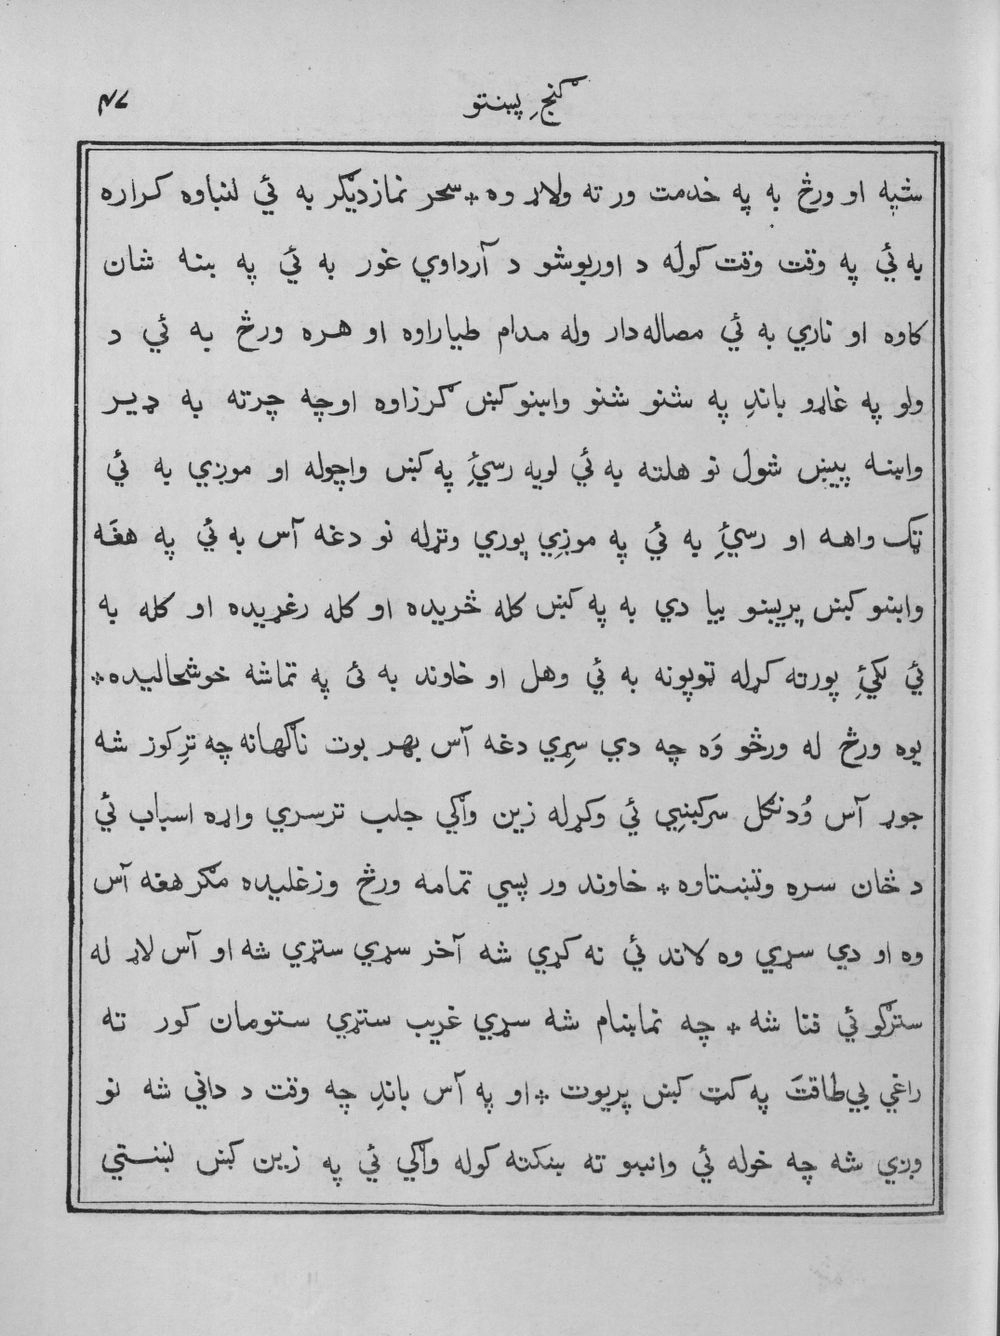 گنجِ پښتو
۴۷
شپه او ورځ به په خدمت ور ته ولاړ وه * سحر نمازدیگر به ئي لنباوه کراره
به ئي په وقت وقت کوله د اوربوشو د آرداوي غور به ئي په ښه شان
کاوه او ناري به ئي مصاله‌دار وله مدام طیاراوه او هره ورځ به ئي د
ولو په غاړو باندِ په شنو شنو واښو کښ گرزاوه اوچه چرته به ډیر
واښه پیښ شول نو هلته به ئي لویه رسئِ په کښ واچوله او موږي به ئي
ټک واهه او رسئِ به ئي په موږي پوري وتړله نو دغه آس به ئي په هغَه
واښو کښ پریښو بیا دي به په کښ کله څریده او کله رغړیده او کله به
ئي لکئِ پورته کړله ټوپونه به ئي وهل او خاوند به ئی په تماشه خوشحالیده *
یوه ورځ له ورځو وَه چه دي سړِي دغه آس بهر بوت ناگهانه چه ترِ کوز شه
جوړ آس وُدنگل سرکښِي ئي وکړله زین واگي جلب ترسري واړه اسباب ئي
د ځان سره وتښتاوه * خاوند ور پسي تمامه ورځ وزغلیده مگر هغه آس
وه او دي سړي وه لاند ئي نه کړي شه آخر سړي ستړي شه او آس لاړ له
سترگو ئي فنا شه * چه نماښام شه سړي غریب ستړي ستومان کور ته
راغي بي‌طاقتَ په کټ کښ پریوت * او په آس باندِ چه وقت د داني شه نو
وږي شه چه خوله ئي وانښو ته ښکته کوله واگي ئي په زین کښ نښتي